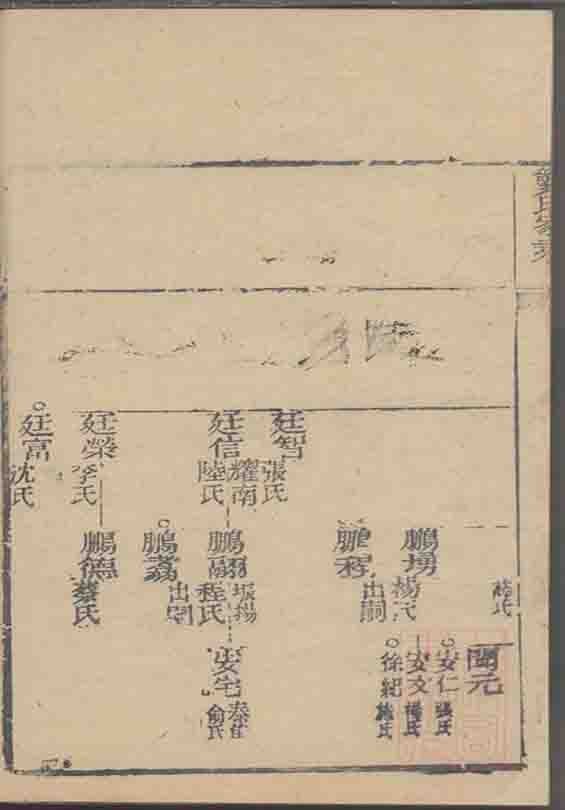 龔氏家乘
廷智
張氏
廷信
耀南
陸氏
廷榮
李氏
廷富
沈氏
鵬
楊氏
鵬程
出嗣
鵬翮
振揚
程氏
鵬
出嗣
鵬德
蔡氏
開元
安仁
張氏
安文
楊氏
徐紀
施氏
安宅
泰住
俞氏